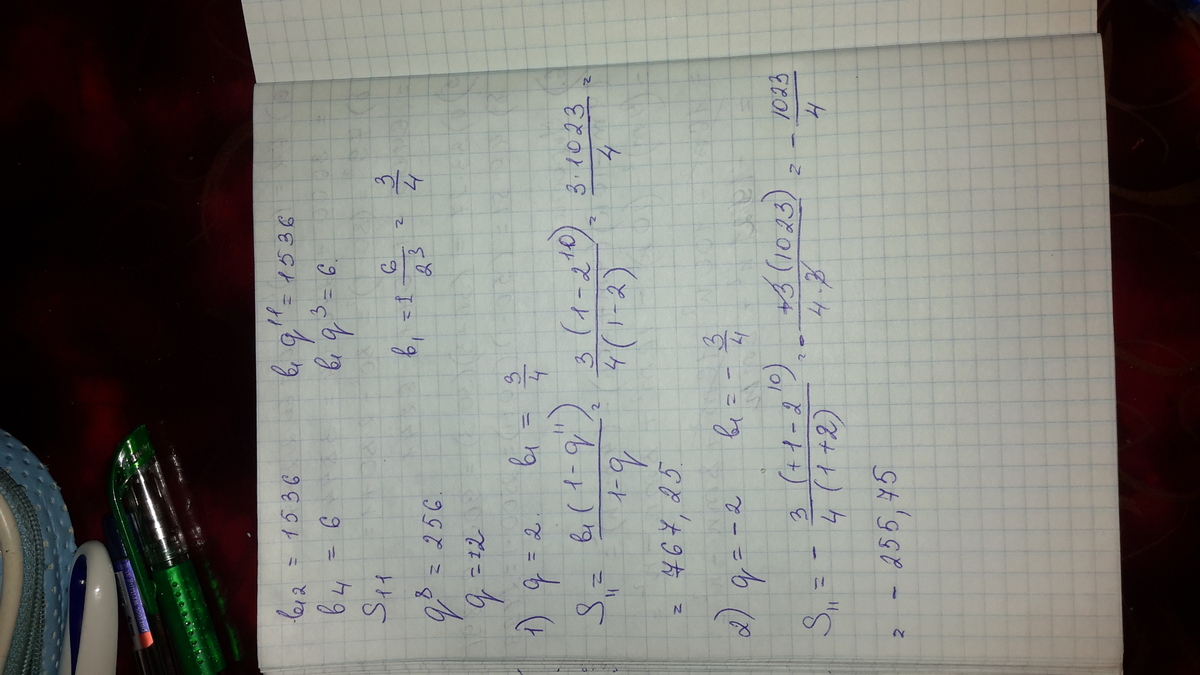 b₁₂ = 1536 b₁q¹¹ = 1536
b₄ = 6 b₁q³ = 6.
S₁₁
q⁸ = 256. b₁ = 6/2³ = 3/4
q = ±2
1) q = 2. b₁ = 3/4
S₁₁ = b₁(1-q¹¹)/(1-q) = 3(1-2¹⁰)/(4(1-2)) = 3·1023/4 =
= 767,25
2) q = -2 b₁ = -3/4
S₁₁ = - 3(+1-2¹⁰)/(4(1+2)) = - +3(1023)/(4·3) = - 1023/4
= - 255,75